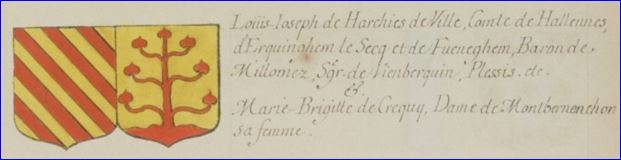 Loüis Joseph de Harchies de Ville, Comte de Hallennes,
d'Erquinghem le Secq et de Fueneghem, Baron de
Millomez, Sgr. de Vienberquin, Plessis. etc.
&.
Marie-Brigitte de Crequy, Dame de Montbernenchon
sa femme.